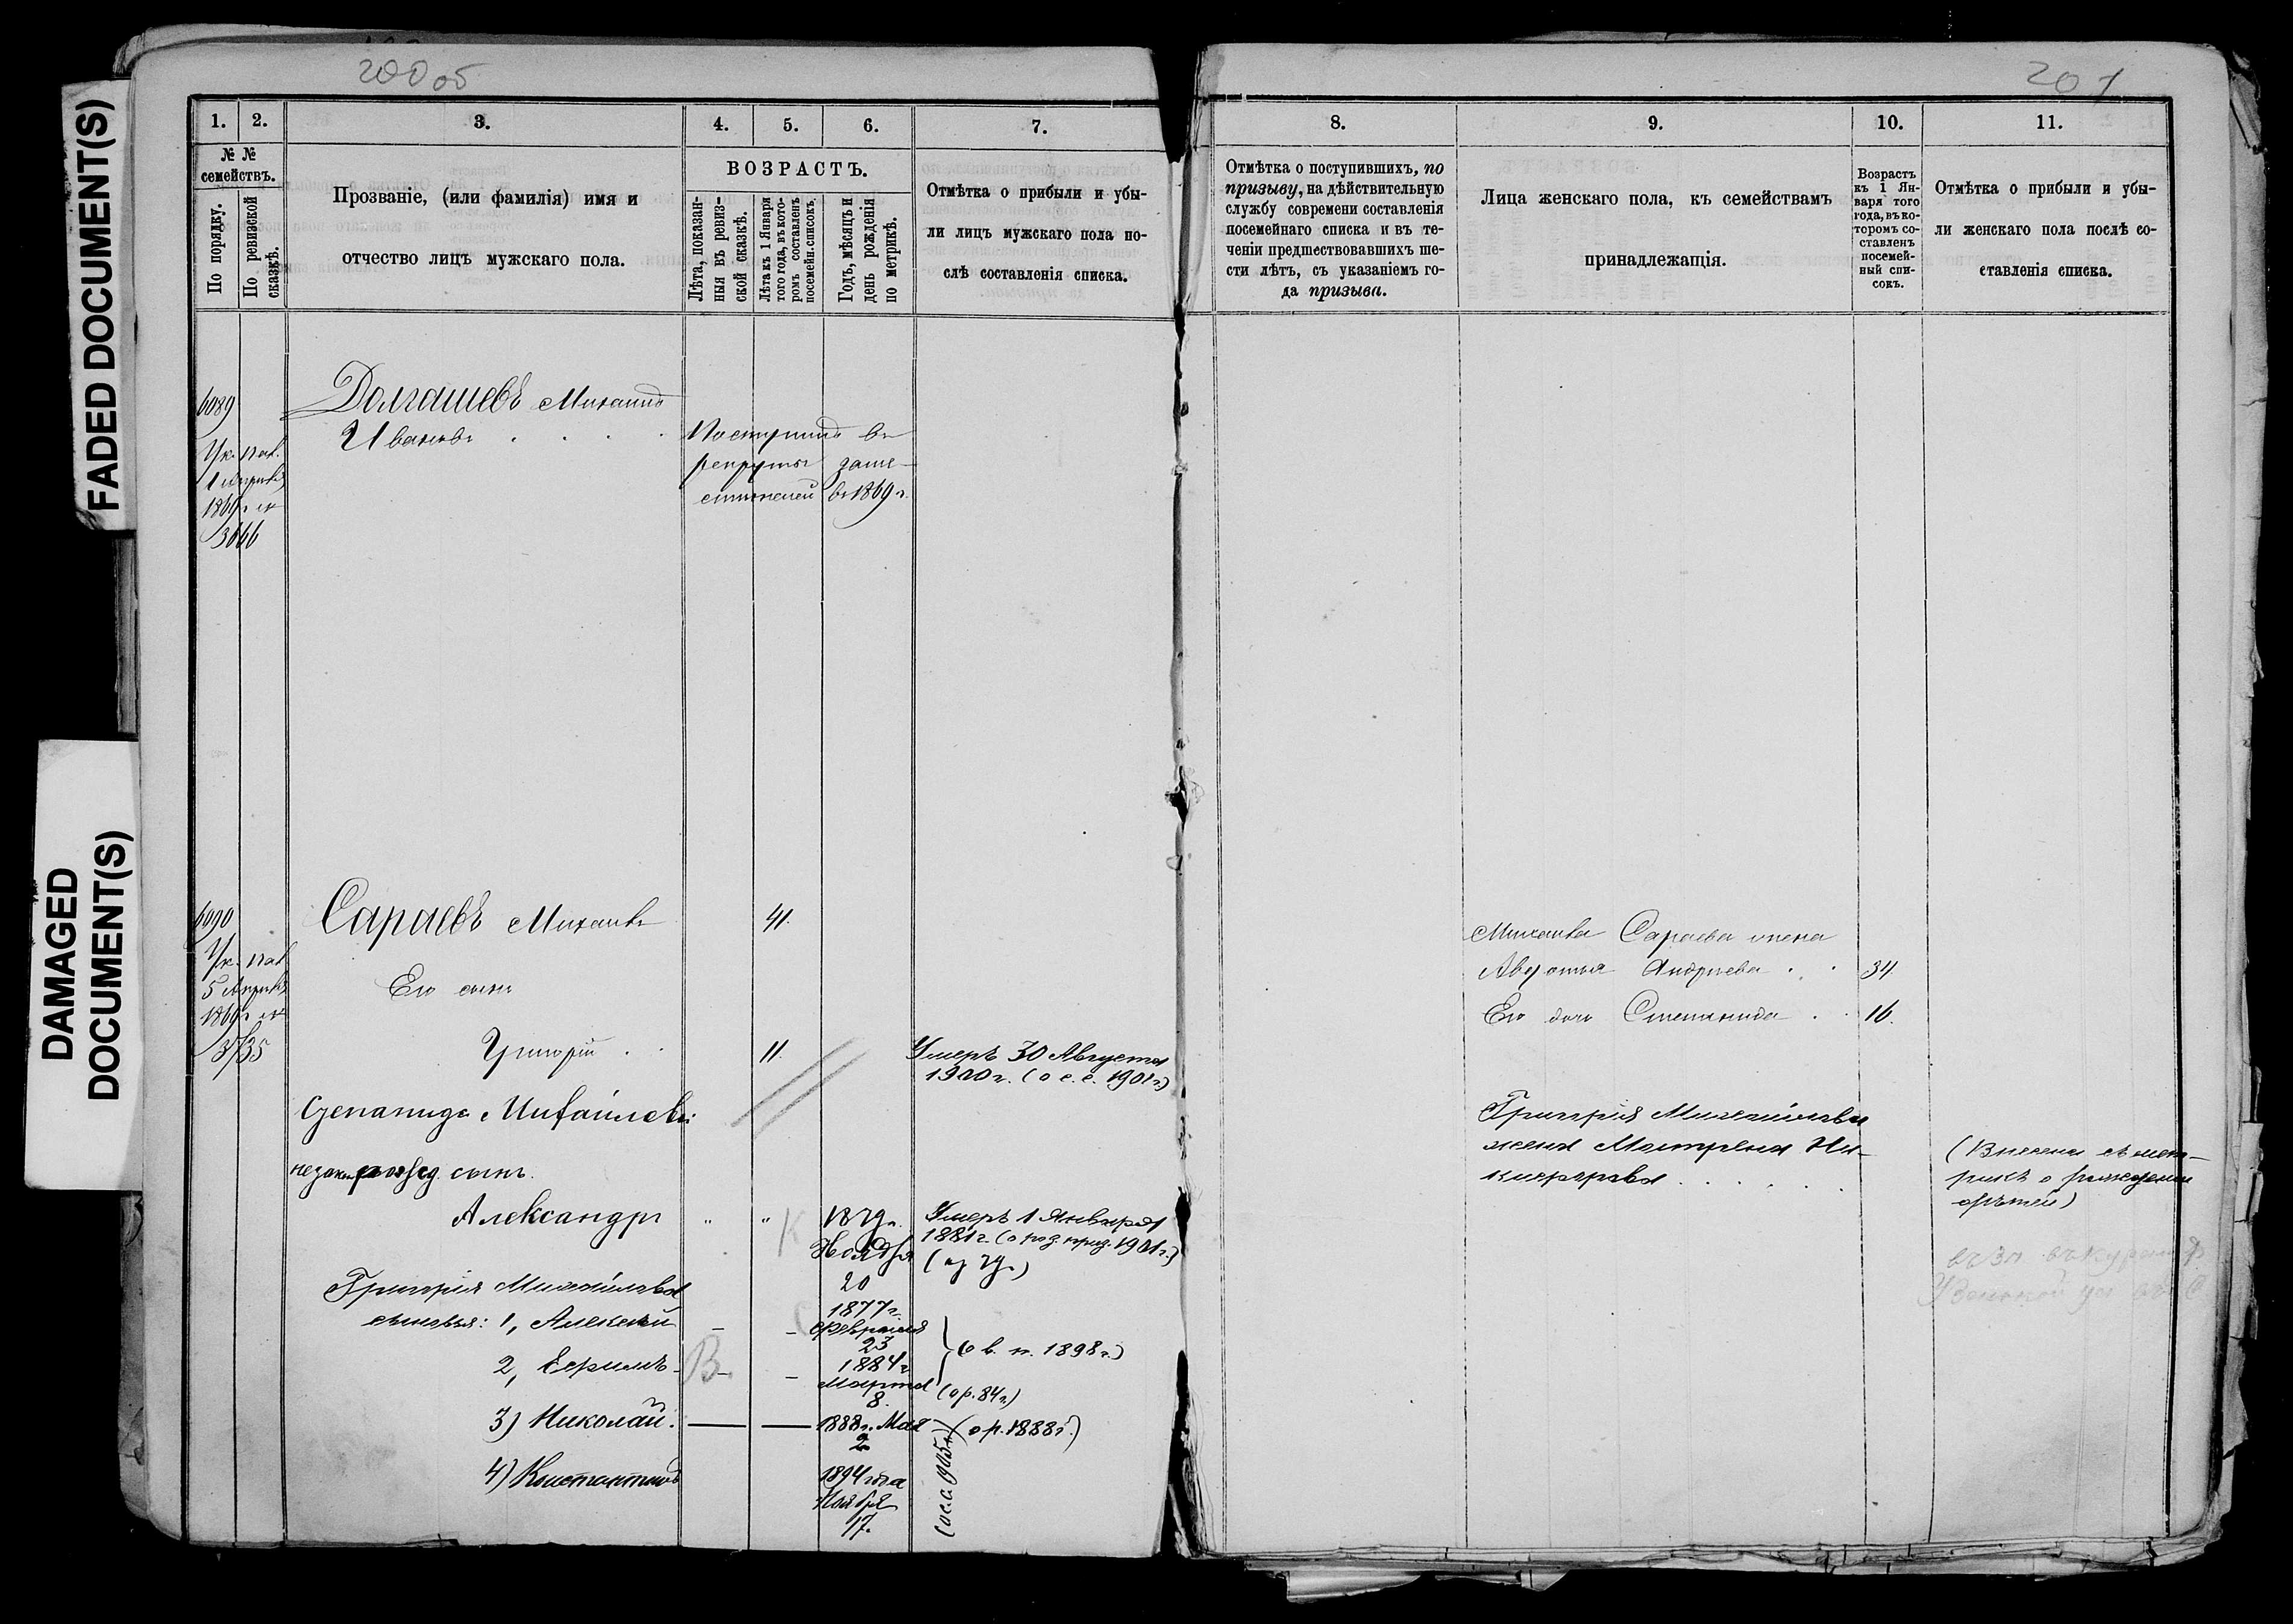 FADED DOCUMENT(S)
DAMAGED
DOCUMENT(S)
200 об
1.
2.
3.
4.
5.
6.
7.
№ №
семействъ.
По порядку.
По ревизской
сказкѣ.
Прозваніе, (или фамилія) имя и
отчество лицъ мужскаго пола.
ВОЗРАСТЪ.
Лѣта, показан-
ныя въ ревиз-
ской сказкѣ.
Лѣта къ 1 Января
того года, въ кото-
ромъ составленъ
посемейн. списокъ.
Годъ, мѣсяцъ и
день рожденія
по метрикѣ.
Отмѣтка о прибыли и убы-
ли лицъ мужскаго пола по-
слѣ составленія списка.
6089
Долгашевъ Михаилъ
Ивановъ . . . .
Поступилъ въ
рекруты
въ 1869 г.
Ук. пал.
1 Апрѣля
1869 г. №
3066
6090
Сараевъ Михаилъ
41.
Ук. пал.
5 Апрѣля
1869 г. №
3135
Его сынъ
Григорій . .
11.
Умеръ 30 Августа
1900 г. (о с. с. 1901 г.)
Степанида Михайлова
незакон. рожд. сынъ.
Александръ
"
"
1879 г.
Ноября
20
Умеръ 1 Января
1881 г. (о под. приз. 1901 г.)
Григорія Михайлова
сыновья: 1, Алексѣй
1877 г.
Февраля
23
2, Ефимъ
В.
1884 г.
Марта
8.
(о в. п. 1898 г.)
(о р. 84 г.)
3) Николай.
1888 г. Мая
2
(о р. 1888 г.)
4) Константинъ
1894 года
Ноября
17.
(о с. с. 1905 г.)
201
8.
9.
10.
11.
Отмѣтка о поступившихъ, по
призыву, на дѣйствительную
службу современи составленія
посемейнаго списка и въ те-
ченіи предшествовавшихъ ше-
сти лѣтъ, съ указаніемъ го-
да призыва.
Лица женскаго пола, къ семействамъ
принадлежащія.
Возрастъ
къ 1 Ян-
варя того
года, въ ко-
торомъ со-
ставленъ
посемей-
ный спи-
сокъ.
Отмѣтка о прибыли и убы-
ли женскаго пола послѣ со-
ставленія списка.
Михаила Сараева жена
Авдотья Андреева . .
34
Его дочь Степанида . .
16.
Григорія Михайлова
жена Матрена Ни-
кифорова . . . . . .
(Внесена съ мет-
рикъ о рожденіи
дѣтей)